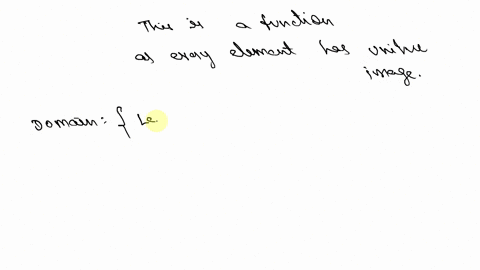 This is a function
as every element has unique
image.
Domain: { Le